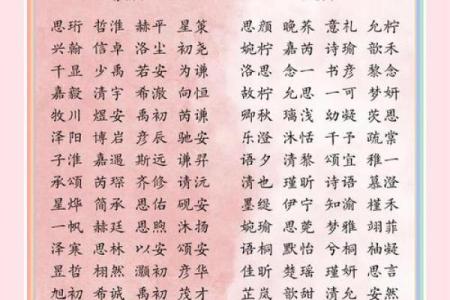 思珩 哲淮 赫平 星策 思颜 晚荞 意礼 允柠
兴翰 信卓 洛尘 初尧 婉柠 嘉芮 诗瑜 歆禾
千显 少禹 若安 为谦 洛思 念一 书彦 黎念
嘉毅 清宇 希澈 向恒 故柠 允思 一可 梦妍
牧川 煜安 禹初 芮谦 卿秋 璃浅 幼凝 茨恩
泽阳 博岩 彦辰 驰安 乐澄 沐恬 千予 疏棠
子淮 嘉遇 斯远 谦昇 语夕 清黎 颂宜 雅一
承颂 芮琛 齐修 请沅 清也 瑾昕 诗语 慕澄
星烨 简承 思佑 砚安 墨缇 伊宁 知渝 槿禾
一帆 赫廷 思煦 沐扬 婉瑜 思莞 梦雅 翊菲
泽寒 思林 以安 颂安 语桐 默怡 兮桐 柚凝
昱哲 栩然 灏初 彦华 佳昕 楚瑶 瑾妍 思言
旭初 希诚 禹初 茂才 芷岚 歆甜 清允 安然